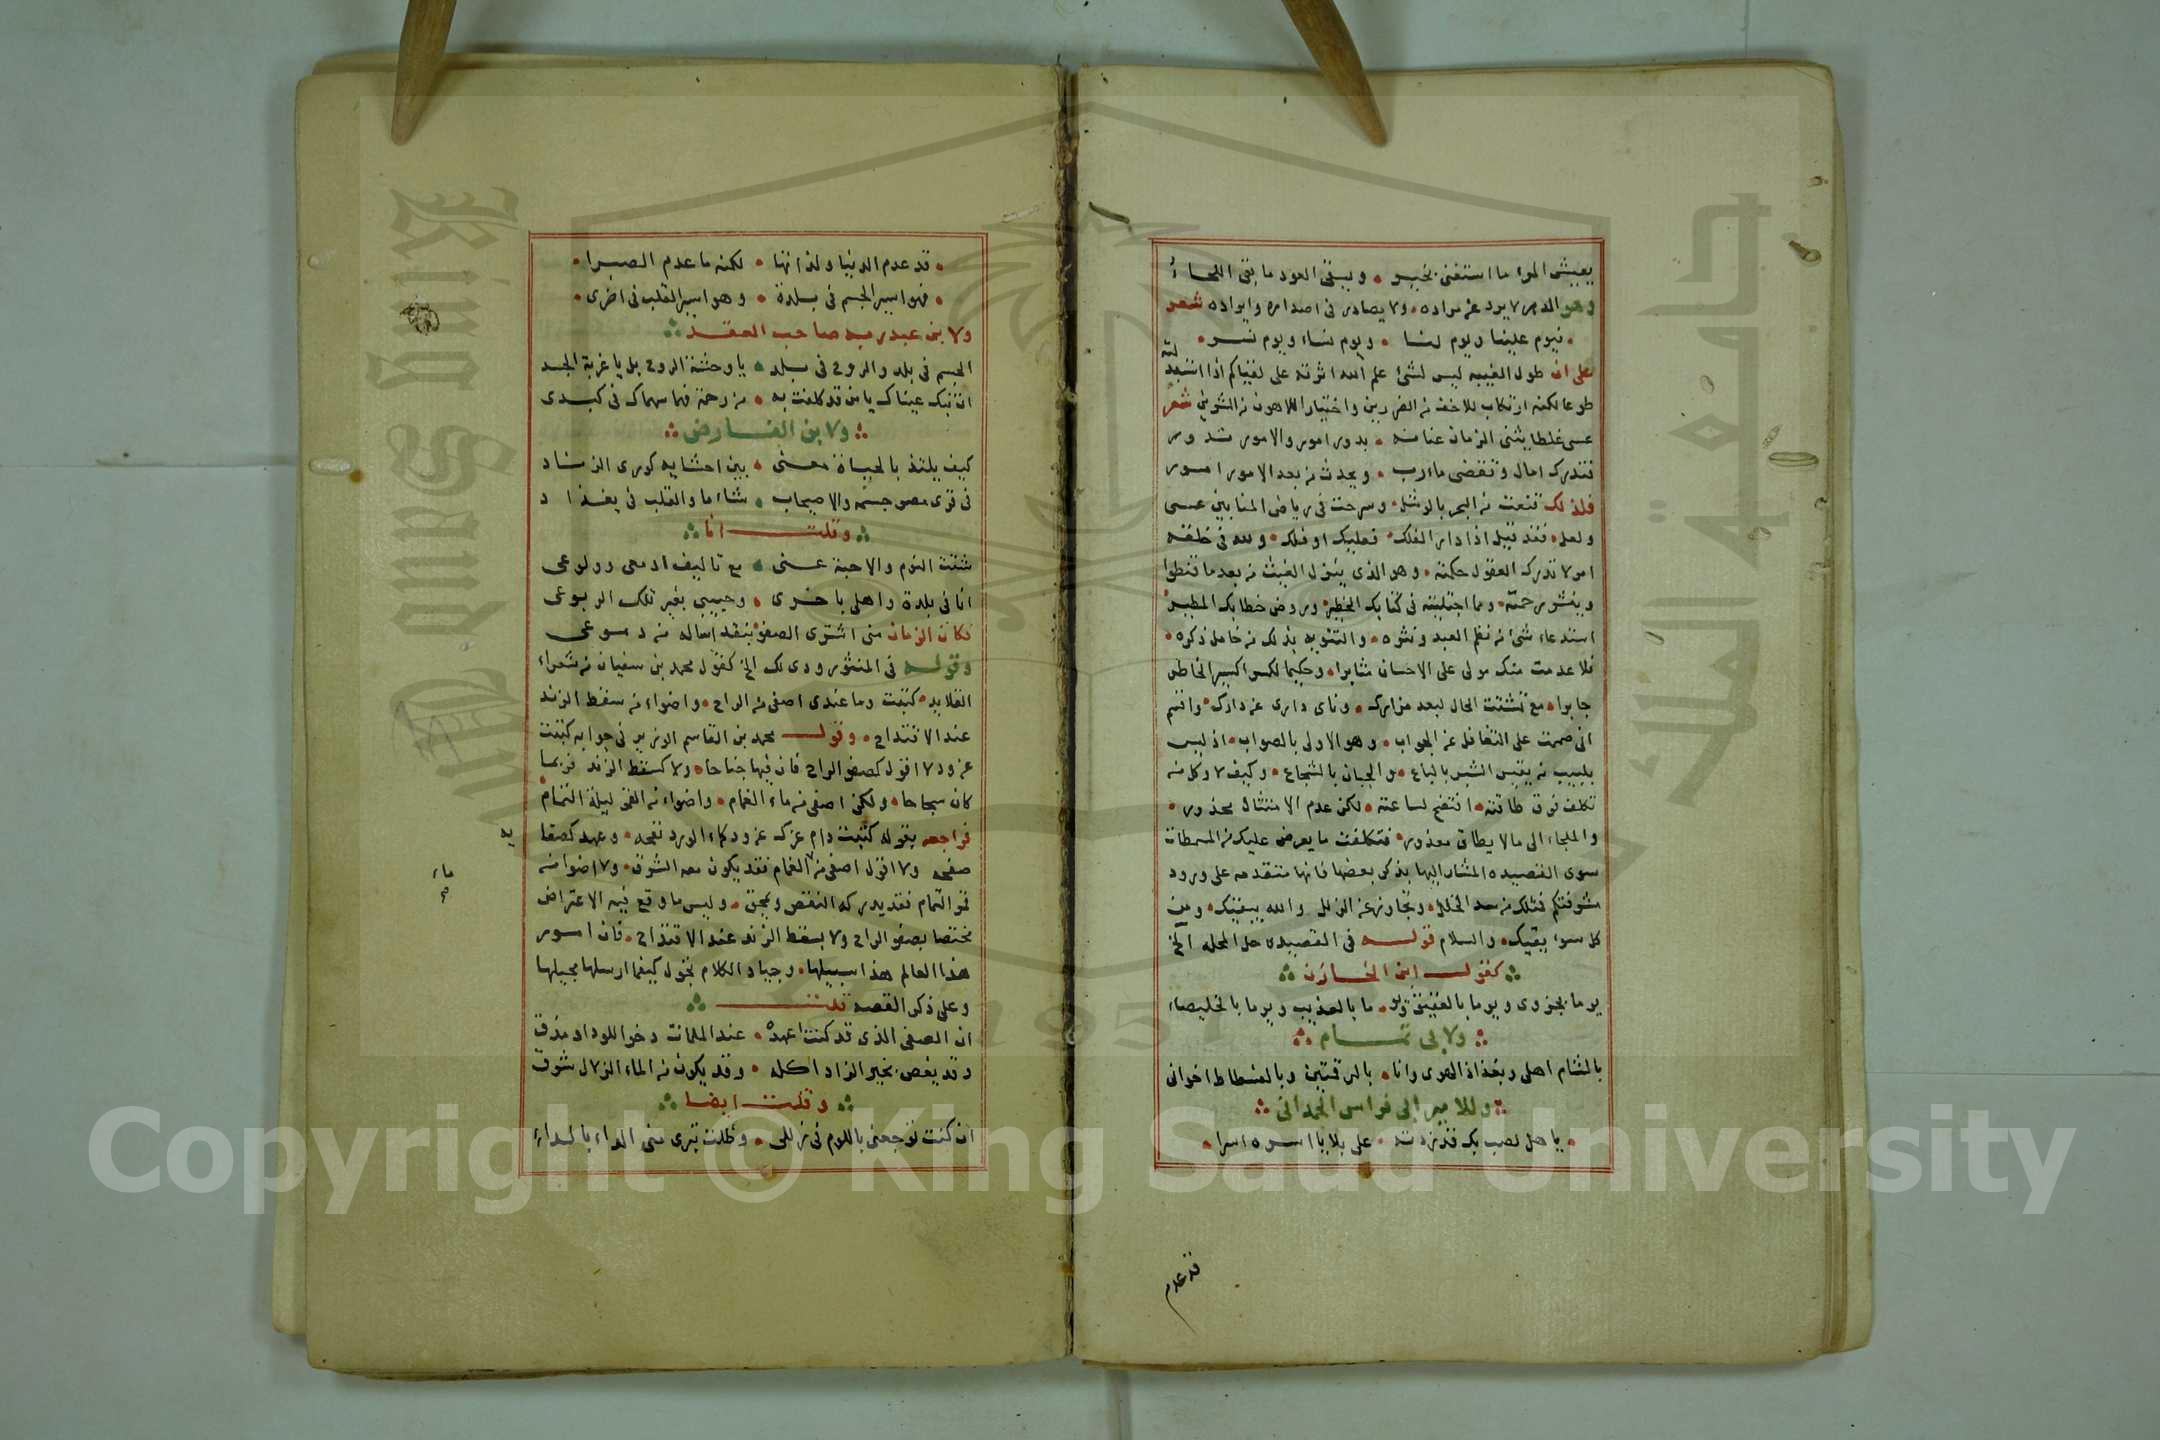 يعيش المرء ما استغنى بخير • ويبقى العود ما بقى اللحاءُ
وهو الدهر لا يرد عن مراده • ولا يصادر فى اصداره وايراده شعر
• فيوم علينا ويوم لنا • ويوم نساء ويوم نسر •
على ان طول الغيبه ليس لشئ علم الله اثرته على لقياكم اذا انتبذ
لته
طوعا لكنه ارتكاب للاخف من الضررين واختيار للاهون من الشرين شعر
عسى غلطا يثنى الزمان عنانه • بدور امور والامور تدور
فتدرك امال وتقضى مآرب • ويحدث من بعد الامور امور
فلذلك قنعت من البحر بالوشل • وسرحت فى رياض المنا بين عسى
ولعل • فقد قيل اذا دار الفلك • فعليك او فلك • ولله فى خلقه
امور لا تدرك العقول حكمته • وهو الذى ينزل الغيث من بعد ما قنطوا
وينشر رحمته • ومما اجتليته فى كتابك الخطير • وروض خطابك المطير
استدعاء شئ من نظم العبد ونثره • والتنويه بذلك من خامل ذكره •
فلا عدمت منك مولى على الاحسان مثابرا • وحكيما لكسر اكسير الخاطر
جابرا • مع تشتت الحال لبعد مزارك • وناى دارى عن دارك • واقسم
انى صممت على التغافل عن الجواب • وهو الاولى بالصواب • اذ ليس
بلبيب من يقيس الشبر بالباع • والجبان بالشجاع • وكيف لا وكل من
تكلف فوق طاقته • افتضح لساعته • لكن عدم الامتثال محذور •
والملجاء الى ما لا يطاق معذور • فتكلفت ما يعرض عليك من المسمطات
سوى القصيده المشار اليها بذكر بعضها فانها متقدمه على ورود
مشرفتكم فتلك من سد الخلل • وتجاوز عن الزلل والله يبقيك • ومن
كل سوء يقيك • والسلام قوله فى القصيدى حل المحله الخ
كقول ابن الخازن
يوما بحزوى ويوما بالعقيق ويو • ما بالعذيب ويوما بالخليصاء
ولابى تمام
بالشام اهلى وبغداذ الهوى وانا • بالرقتين وبالفسطاط اخوانى
وللامير ابى فراس الحمدانى
• يا هل لصب بك قد زدته • على بلايا اسره اسرا •
قد عدم
• قد عدم الدنيا ولذاتها • لكنه ما عدم الصبرا •
• فهو اسير الجسم فى بلدة • وهو اسير القلب فى اخرى •
ولابن عبد ربه صاحب العقد
الجسم فى بلد والروح فى بلد • يا وحشة الروح بل يا غربة الجسد
ان تبك عيناك يا من قد كلفت به • من رحمة فهما سهماك فى كبدى
ولابن الفارض
كيف يلتذ بالحياة معنى • بين احشايه كورى الزناد
فى قرى مصر جسمه والاصيحاب • شئاما والقلب فى بغذاد
وقلت انا
شتت النوم والاحبة عنى • مع تاليف ادمعى وولوعى
انا فى بلدة واهلى باخرى • وحبيبى بغير تلك الربوعى
فكان الزمان منى اشترى الصفو بنقد اساله من دموعى
وقوله فى المنثور ودى لك الخ كقول محمد بن سفيان من شعراء
القلايد • كتبت وما عندى اصفى من الراح • واضواء من سقط الزند
عند الاقتداح • وقول محمد بن القاسم الوزير فى جوابه كتبت
عن ود لا اقول كصفو الراح فان فيها جناحا • ولا كسقط الزند فربما
كان شحاحا • ولكن اصفى من ماء الغمام • واضواء من القمر ليلة التمام
فراجعه بقوله كتبت دام عزك عن ود كماء الورد نفحه • وعهد كصفا
يه
صفحه ولا اقول اصفى من الغمام فقد يكون معه الشرق • ولا اضوا من
ماء
قمر التمام فقد يدركه النقص ويمحق • وليس ما وقع فيه الاعتراض
مختصا بصفو الراح ولا بسقط الزند عند الاقتداح • فان امور
هذا العالم هذا سبيلها • وجياد الكلام تجول كيفما ارسلها مجيلها
وعلى ذكر القصه قلت
ان الصفى الذى قد كنت اعهده • عند الملمات ذخرا للوداد مذق
وقد يغص بخير الزاد اكله • وقد يكون من الماء الزلال شرق
وقلت ايضا
ان كنت توجعنى باللوم فى زللى • وظلت تبرى منى الداء بالداء
Copyright © King Saud University
King Saud University
جامعة الملك سعود
1957